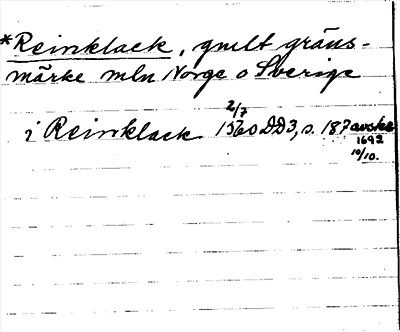 *Reinklack, gmlt gräns-
märke mln Norge o Sverige
2/7
i Reinklack 1560 DD3, s. 187 avskr
1692
10/10.